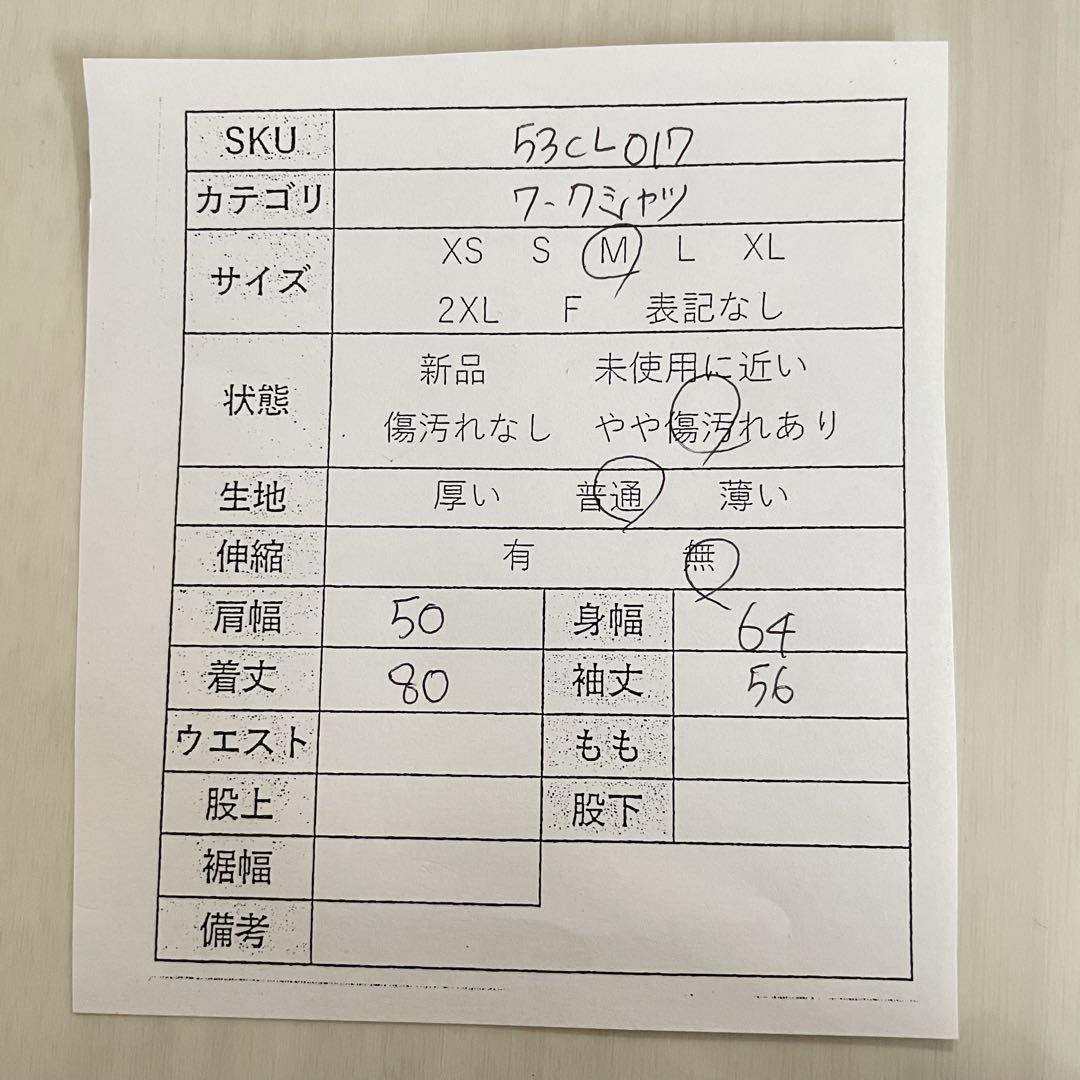 SKU 53CL017
カテゴリ ワークシャツ
サイズ XS S M L XL
2XL F 表記なし
状態 新品 未使用に近い
傷汚れなし やや傷汚れあり
生地 厚い 普通 薄い
伸縮 有 無
肩幅 50 身幅 64
着丈 80 袖丈 56
ウエスト もも
股上 股下
裾幅
備考